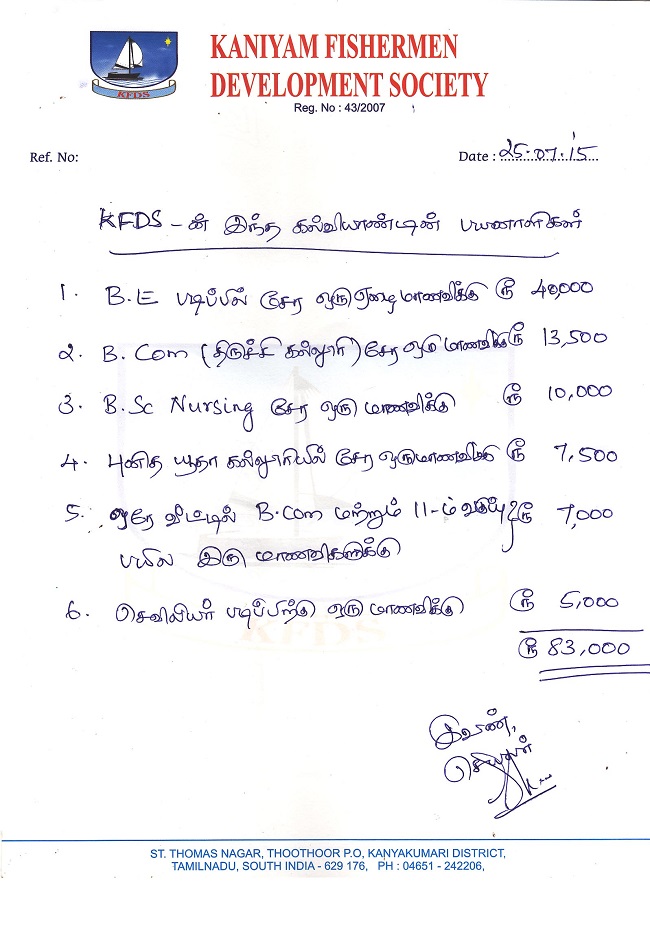 KFDS
KANIYAM FISHERMEN
DEVELOPMENT SOCIETY
Reg. No : 43/2007
Ref. No:
Date : 25.07.15
KFDS - ன் இந்த கல்வியாண்டின் பயனாளிகள்
1. B.E படிப்பில் சேர ஒரு ஏழை மாணவிக்கு ரூ 40,000
2. B.Com (திருச்சி கல்லூரி) சேர ஒரு மாணவிக்கு ரூ 13,500
3. B.Sc Nursing சேர ஒரு மாணவிக்கு ரூ 10,000
4. புனித யூதா கல்லூரியில் சேர ஒரு மாணவிக்கு ரூ 7,500
5. ஒரே வீட்டில் B.Com மற்றும் 11-ம் வகுப்பு ரூ 7,000
பயில இரு மாணவிகளுக்கு
6. செவிலியர் படிப்பிற்கு ஒரு மாணவிக்கு ரூ 5,000
ரூ 83,000
இவண்,
செயலர்
ST. THOMAS NAGAR, THOOTHOOR P.O, KANYAKUMARI DISTRICT,
TAMILNADU, SOUTH INDIA - 629 176, PH : 04651 - 242206,